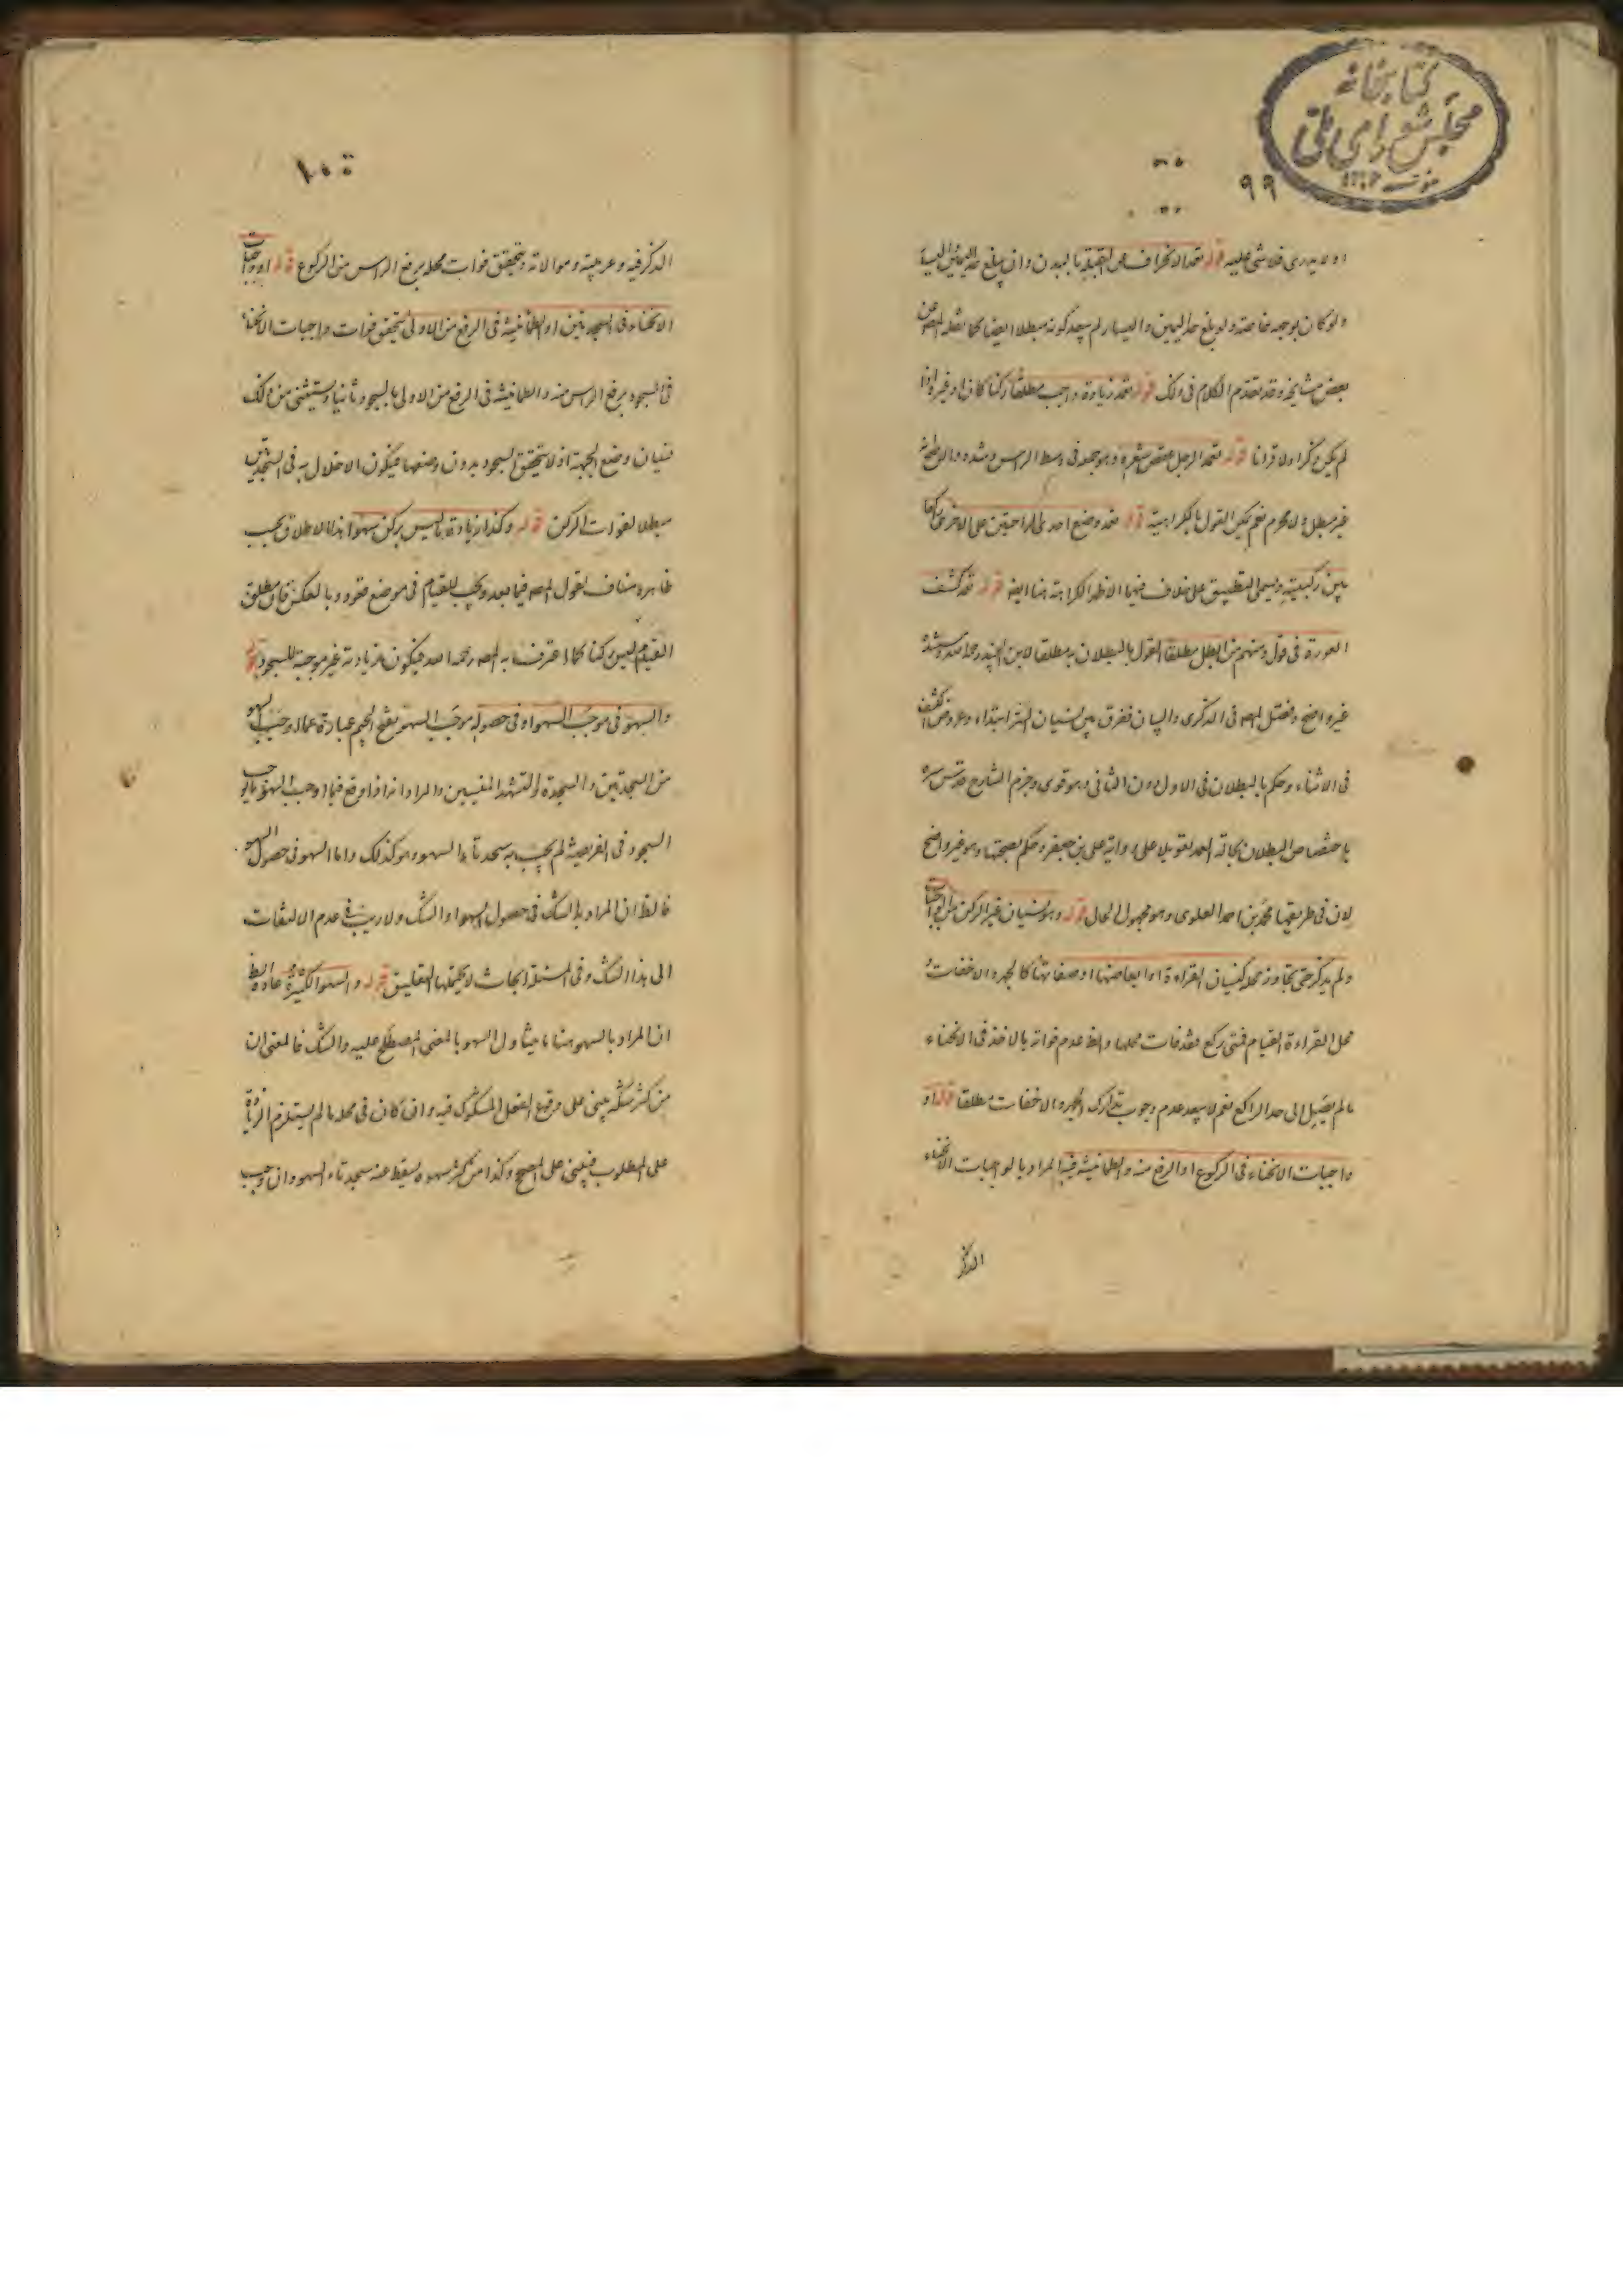 كتابخانه
مجلس شورای ملی
٩٩
او لا يدري فلا شيء عليه قوله تعمد الانحراف عن القبلة بالبدن وان يبلغ حد اليمين اليسار
ولو كان بوجهه خاصة ولو بلغ حد اليمين واليسار لم يبعد كونه مبطلا ايضا كما نقله المصه عن
بعض مشايخه وقد تقدم الكلام في ذلك قوله تعمد زيادة واجب مطلقا ركنا كان او غيره اذا
لم يكن ذكرا ولا قرانا قوله تعمد الرجل عقص شعره وهو جمعه في وسط الراس وشده والاصح انه
غير مبطل ولا محرم نعم يمكن القول بالكراهية قوله تعمد وضع احدى الراحتين على الاخرى راكعا
بين ركبتيه ويسمى التطبيق على خلاف فيهما الاظهر الكراهة هنا ايضه قوله تعمد كشف
العورة في قول ومنهم من ابطل مطلقا القول بالبطلان به مطلقا لابن الجنيد رحمه الله وسنده
غير واضح وفصل المصه في الذكرى والبيان ففرق بين نسيان الستر ابتداء وعروض الكشف
في الاثناء وحكم بالبطلان في الاول دون الثاني وهو قوي وجزم الشارح قدس سره
باختصاص البطلان بحالة العمد تعويلا على رواية علي بن جعفر وحكم بصحتها وهو غير واضح
لان في طريقها محمد بن احمد العلوي وهو مجهول الحال قوله وهو نسيان غير الركن من الواجبات
ولم يذكر حتى تجاوز محله كنسيان القراءة او ابعاضها او صفاتها كالجهر والاخفات
محل القراءة القيام فمتى ركع فقد فات محلها والظ عدم فواته بالاخذ في الانحناء
ما لم يصل الى حد الراكع نعم لا يبعد عدم وجوب تدارك الجهر والاخفات مطلقا قوله او
واجبات الانحناء في الركوع او الرفع منه والطمانينة فيه المراد بالواجبات الانحناء
الذكر
١٠٠
الذكر فيه وعربيته وموالاته ويتحقق فوات محله برفع الراس من الركوع قوله او واجبات
الانحناء في السجدتين او الطمانينة في الرفع من الاولى يتحقق فوات واجبات الانحناء
في السجود برفع الراس منه والطمانينة في الرفع من الاولى بالسجود ثانيا ويستثنى من ذلك
نسيان وضع الجبهة اذ لا يتحقق السجود بدون وضعها فيكون الاخلال به في السجدتين
مبطلا لفوات الركن قوله وكذا زيادة ما ليس بركن سهوا هذا الاطلاق بحسب
ظاهره مناف لقول المصه فيما بعد ويجب للقيام في موضع قعود وبالعكس فان مطلق
القيام ليس ركنا كما اعترف به المصه رحمه الله فيكون زيادته غير موجبة للسجود قوله
والسهو في موجب السهو او في حصوله موجب السهو بفتح الجيم عبارة عما اوجبه السهو
من السجدتين والسجدة والتشهد المنسيين والمراد انه اذا وقع فيما اوجبه السهو ما يوجب
السجود في الفريضة لم يجب به سجدتا السهو وهو كذلك واما السهو في حصول السهو
فالظ ان المراد به الشك في حصول السهو او الشك ولا ريب في عدم الالتفات
الى هذا الشك وفي المسئلة ابحاث لا يحتملها التعليق قوله والسهو الكثير عادة الظ
ان المراد بالسهو هنا ما يتناول السهو بالمعنى المصطلح عليه والشك فالمعنى ان
من كثر شكه يبني على وقوع الفعل المشكوك فيه وان كان في محله ما لم يستلزم الزيادة
على المطلوب فيبني على المصحح وكذا من كثر سهوه يسقط عنه سجدتا السهو وان وجب